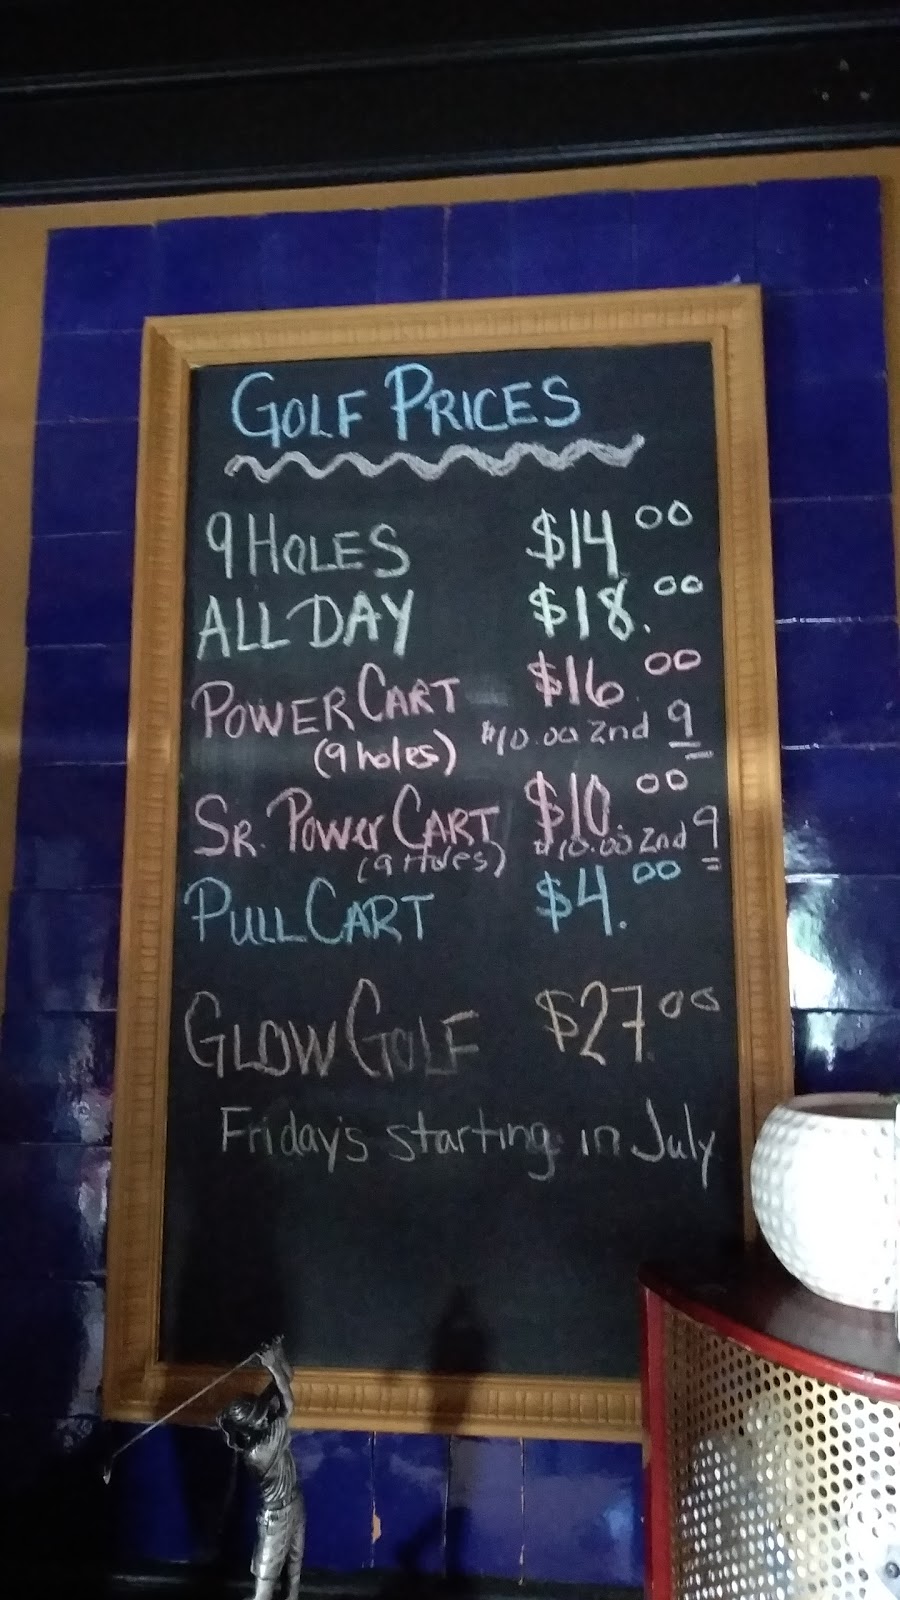 GOLF PRICES
9 HOLES $14 00
ALL DAY $18. 00
POWER CART $16. 00
(9 holes) $10.00 2nd 9
SR. POWER CART $10. 00
(9 Holes) $10.00 2nd 9
PULL CART $4. 00
GLOW GOLF $27. 00
Friday's starting in July